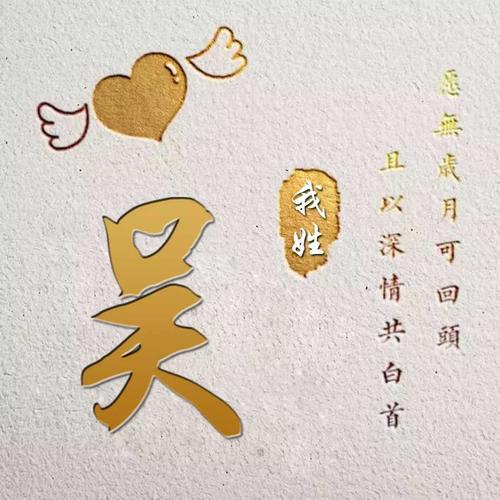 愿無歳月可回頭
且以深情共白首
我姓
吴